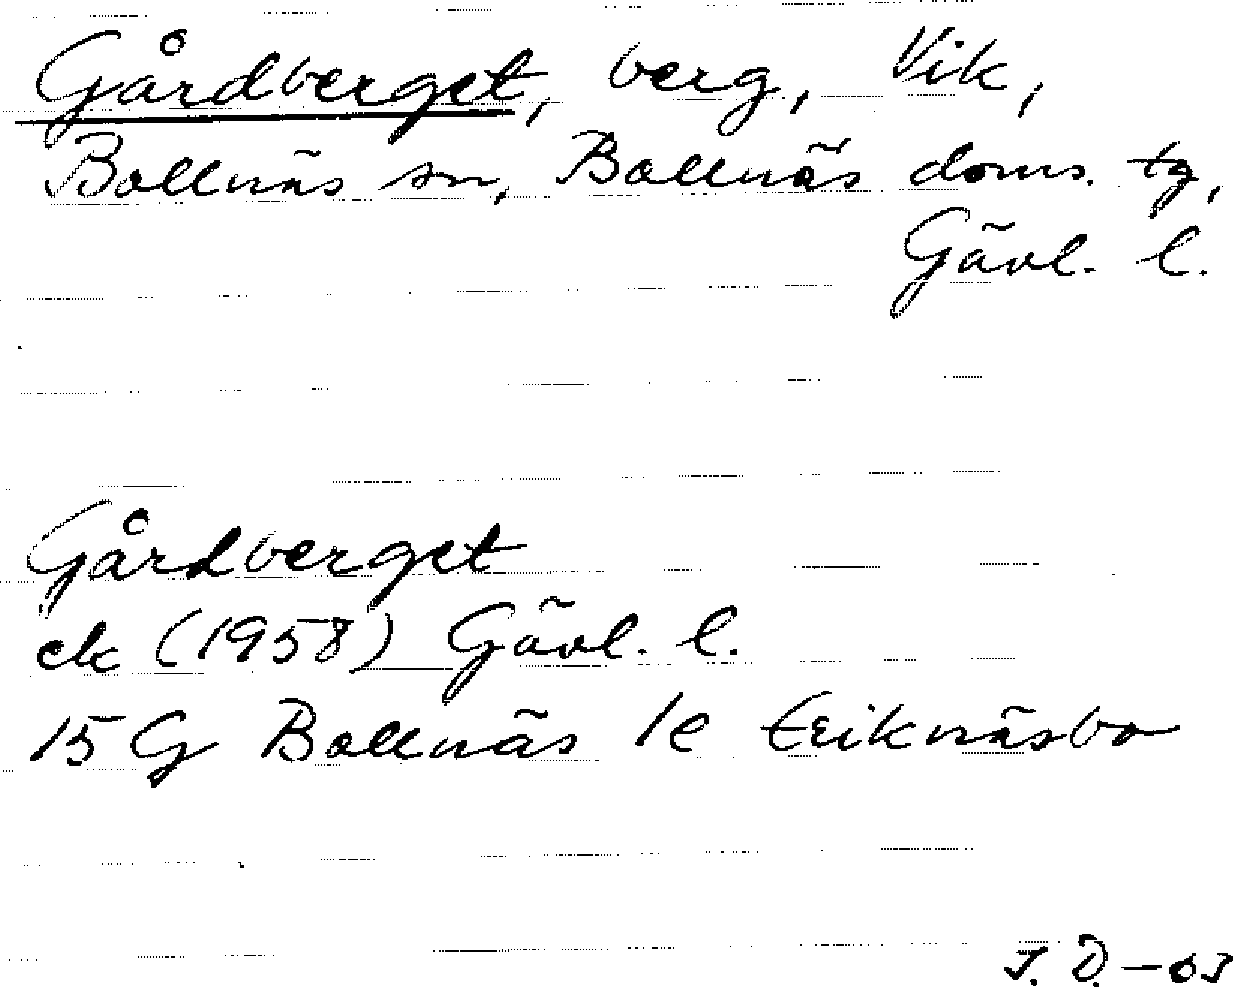 Gårdberget, berg, Vik,
Bollnäs sn, Bollnäs doms. tg,
Gävl. l.
Gårdberget
ek (1958) Gävl. l.
15 G Bollnäs 1e Eriknäsbo
J. Ö. - 03